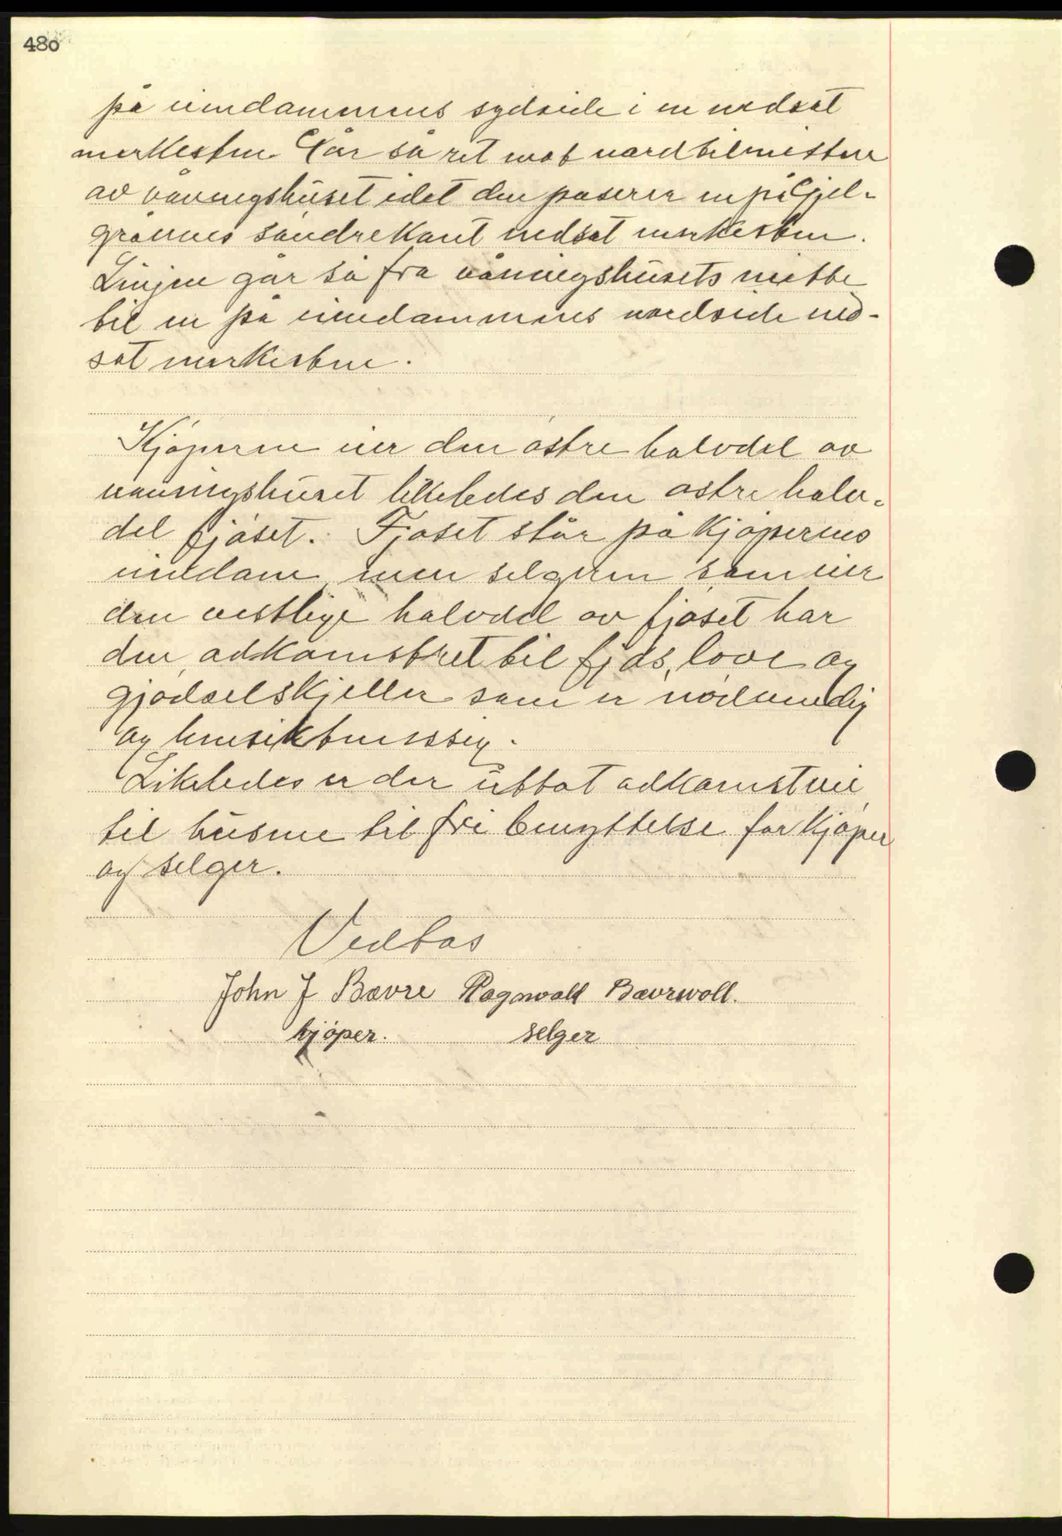 480
på eiendammens sydside i en nedsat
merkesten. Går så ret mot nord til midten
av våningshuset idet den paserer en på Gjel-
grånnes søndre kant nedsat merkesten.
Linjen går så fra våningshusets midte
til en på eiendammens nordside ned-
sat merkesten.
Kjøperen eier den østre halvdel av
våningshuset likeledes den østre halv-
del fjøset. Fjøset står på kjøperens
eiendom, men selgeren som eier
den vestlige halvdel av fjøset har
den adkomstret til fjøs, løve og
gjødselskjeller som er nødvendig
og hensiktsmessig.
Likeledes er der utlat adkomstvei
til husene til fri benyttelse for kjøper
og selger.
Vedtas
John J Bævre Ragnvald Bævrvoll.
kjøper. selger